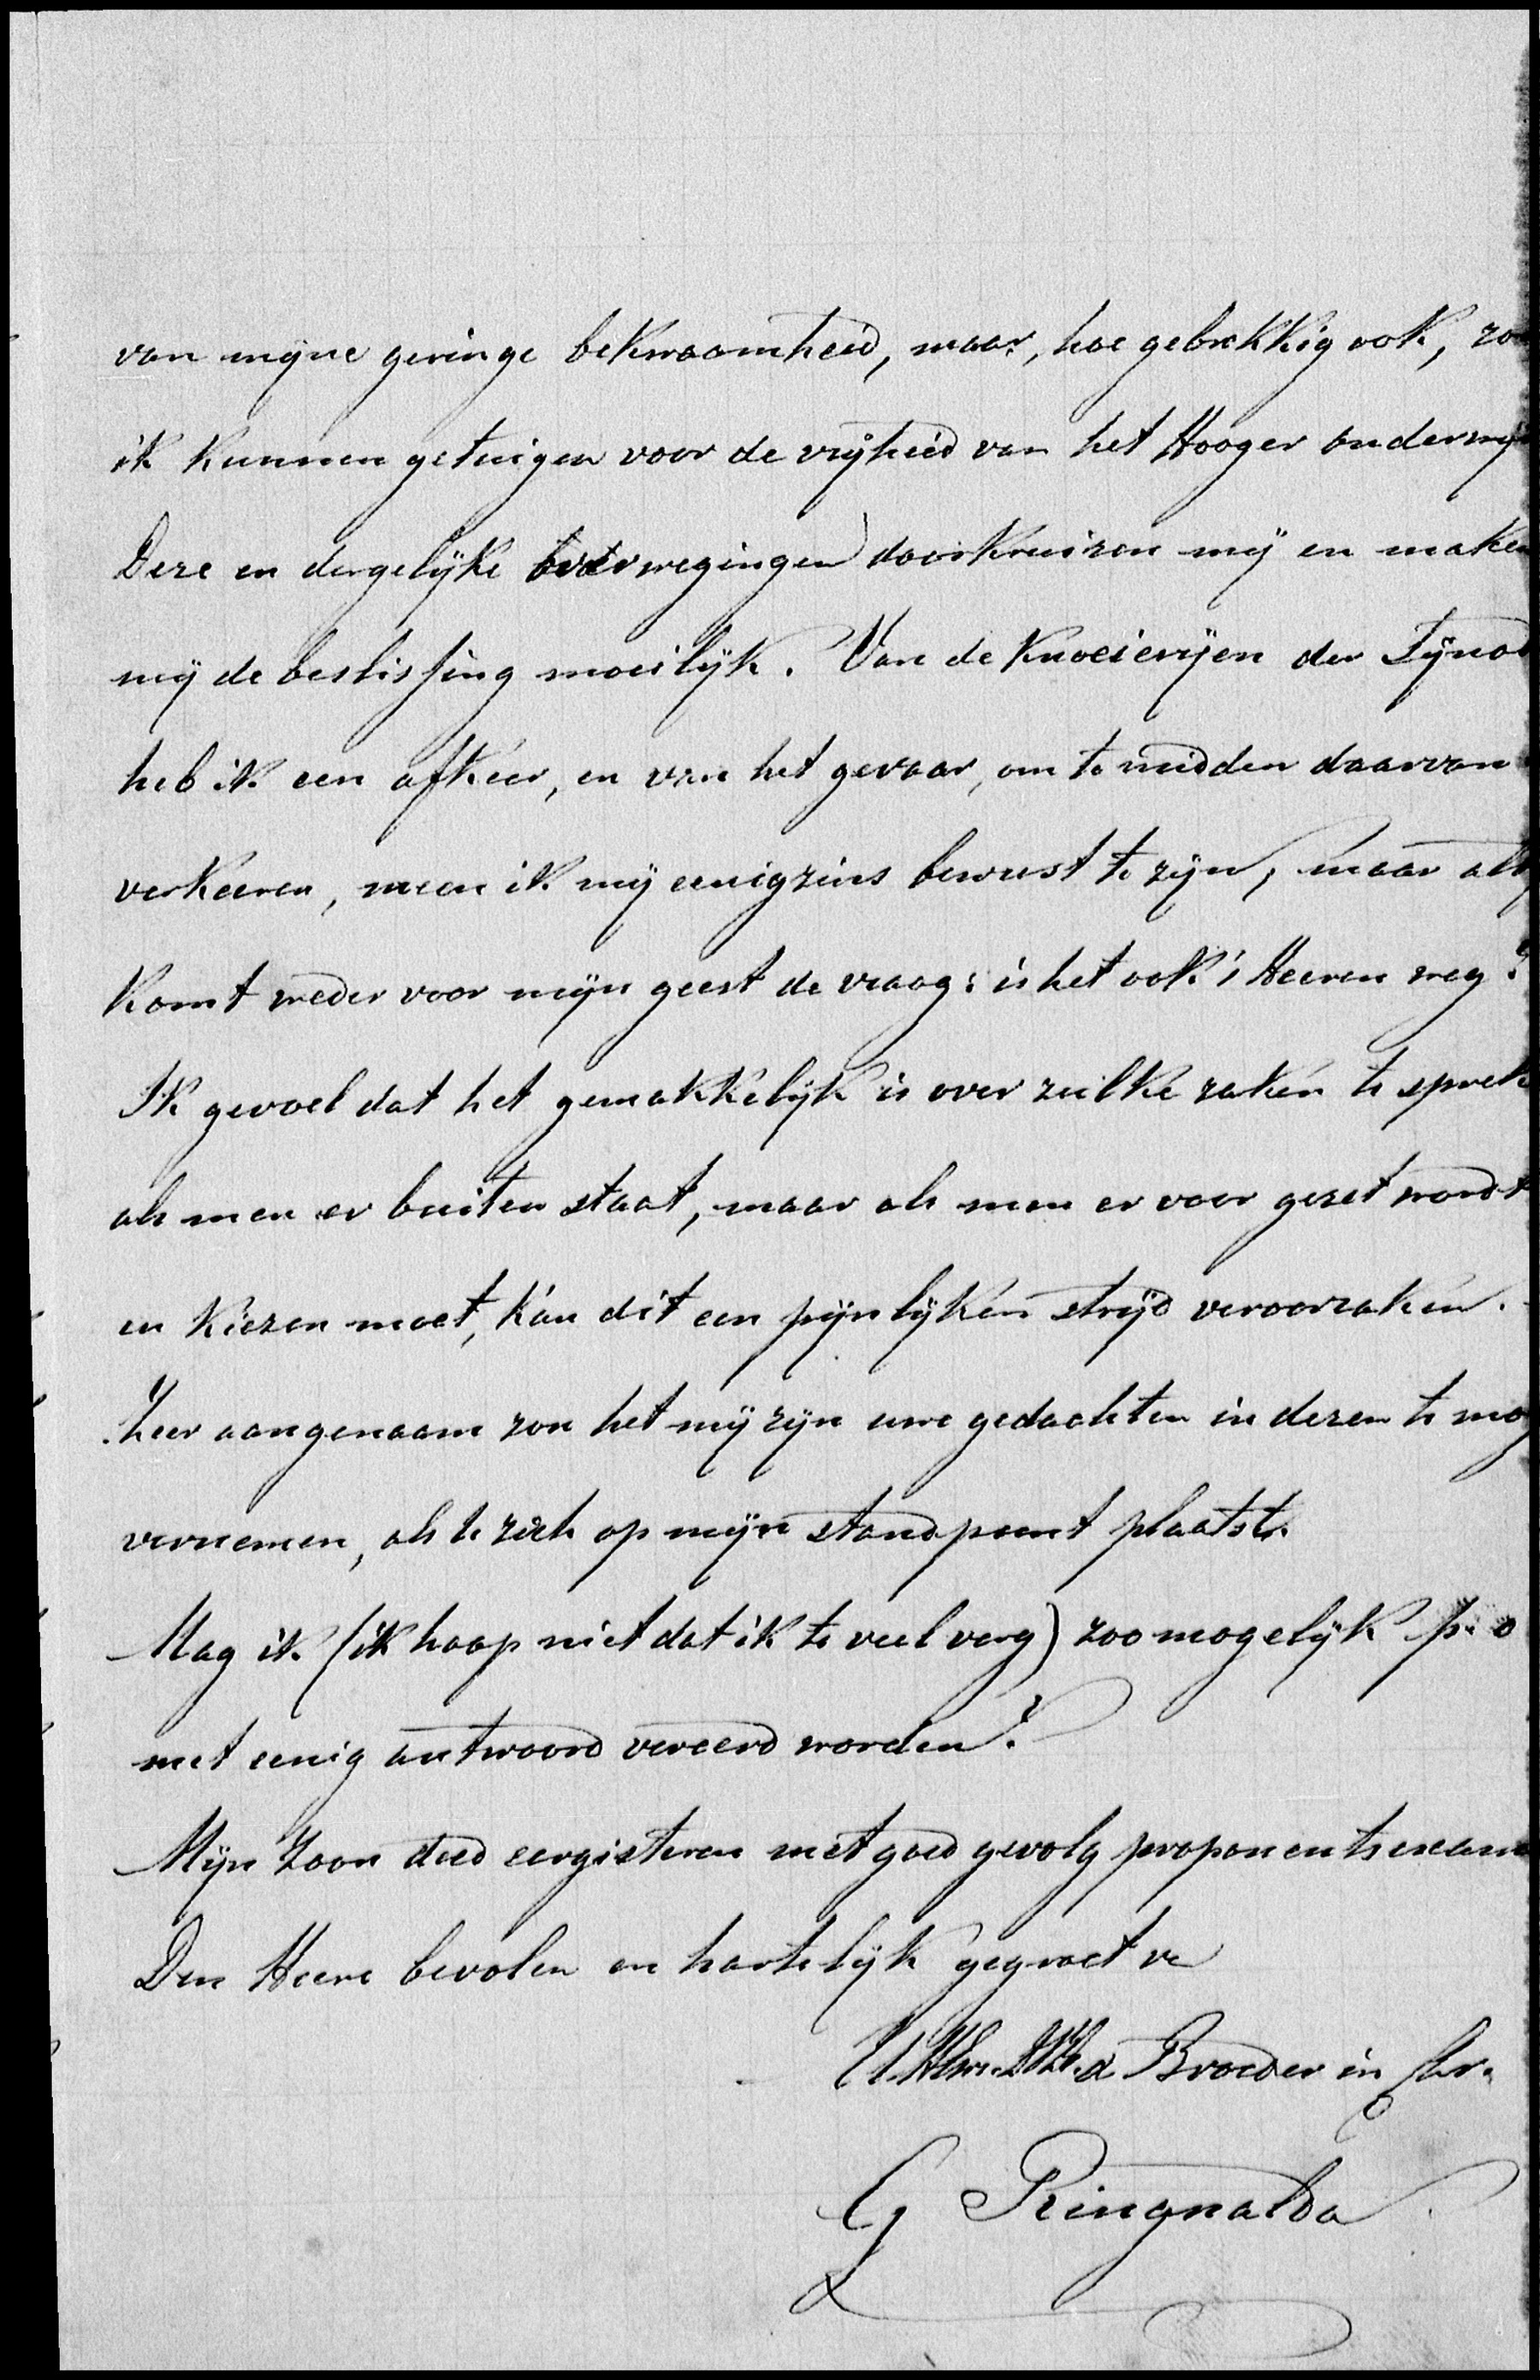 van mijne geringe bekwaamheid, maar, hoe gebrekkig ook, zou
ik kunnen getuigen voor de vrijheid van het Hooger onderwij
Deze en dergelijke overwegingen doorkruizen mij en maken
mij de beslissing moeilijk. Van de knoeierijen der Synod
heb ik een afkeer, en van het gevaar, om te midden daarvan
verkeeren, meen ik mij eenigzins bewust te zijn, maar alt
komt weder voor mijn geest de vraag: is het ook 's Heeren weg?
Ik gevoel dat het gemakkelijk is over zulke zaken te sprek
als men er buiten staat, maar als men er voor gezet wordt
en kiezen moet, kan dit een pijnlijken strijd veroorzaken.
Zeer aangenaam zou het mij zijn uwe gedachten in dezen te mog
vernemen, als U zich op mijn standpunt plaatst.
Mag ik (ik hoop niet dat ik te veel verg) zoo mogelijk p. o
met eenig antwoord vereerd worden?
Mijn Zoon deed eergisteren met goed gevolg proponentsexam
Den Heere bevolen en hartelijk gegroet v
Broeder in Chr.
G Ringnalda